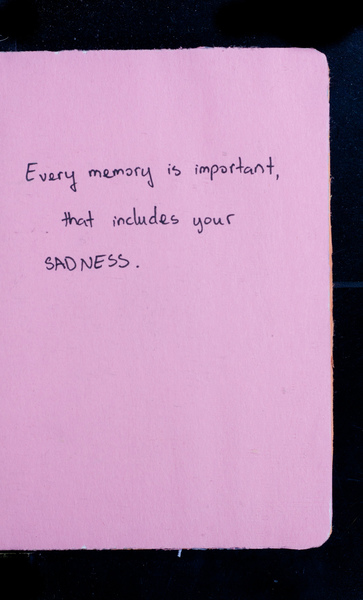 Every memory is important,
that includes your
SADNESS.